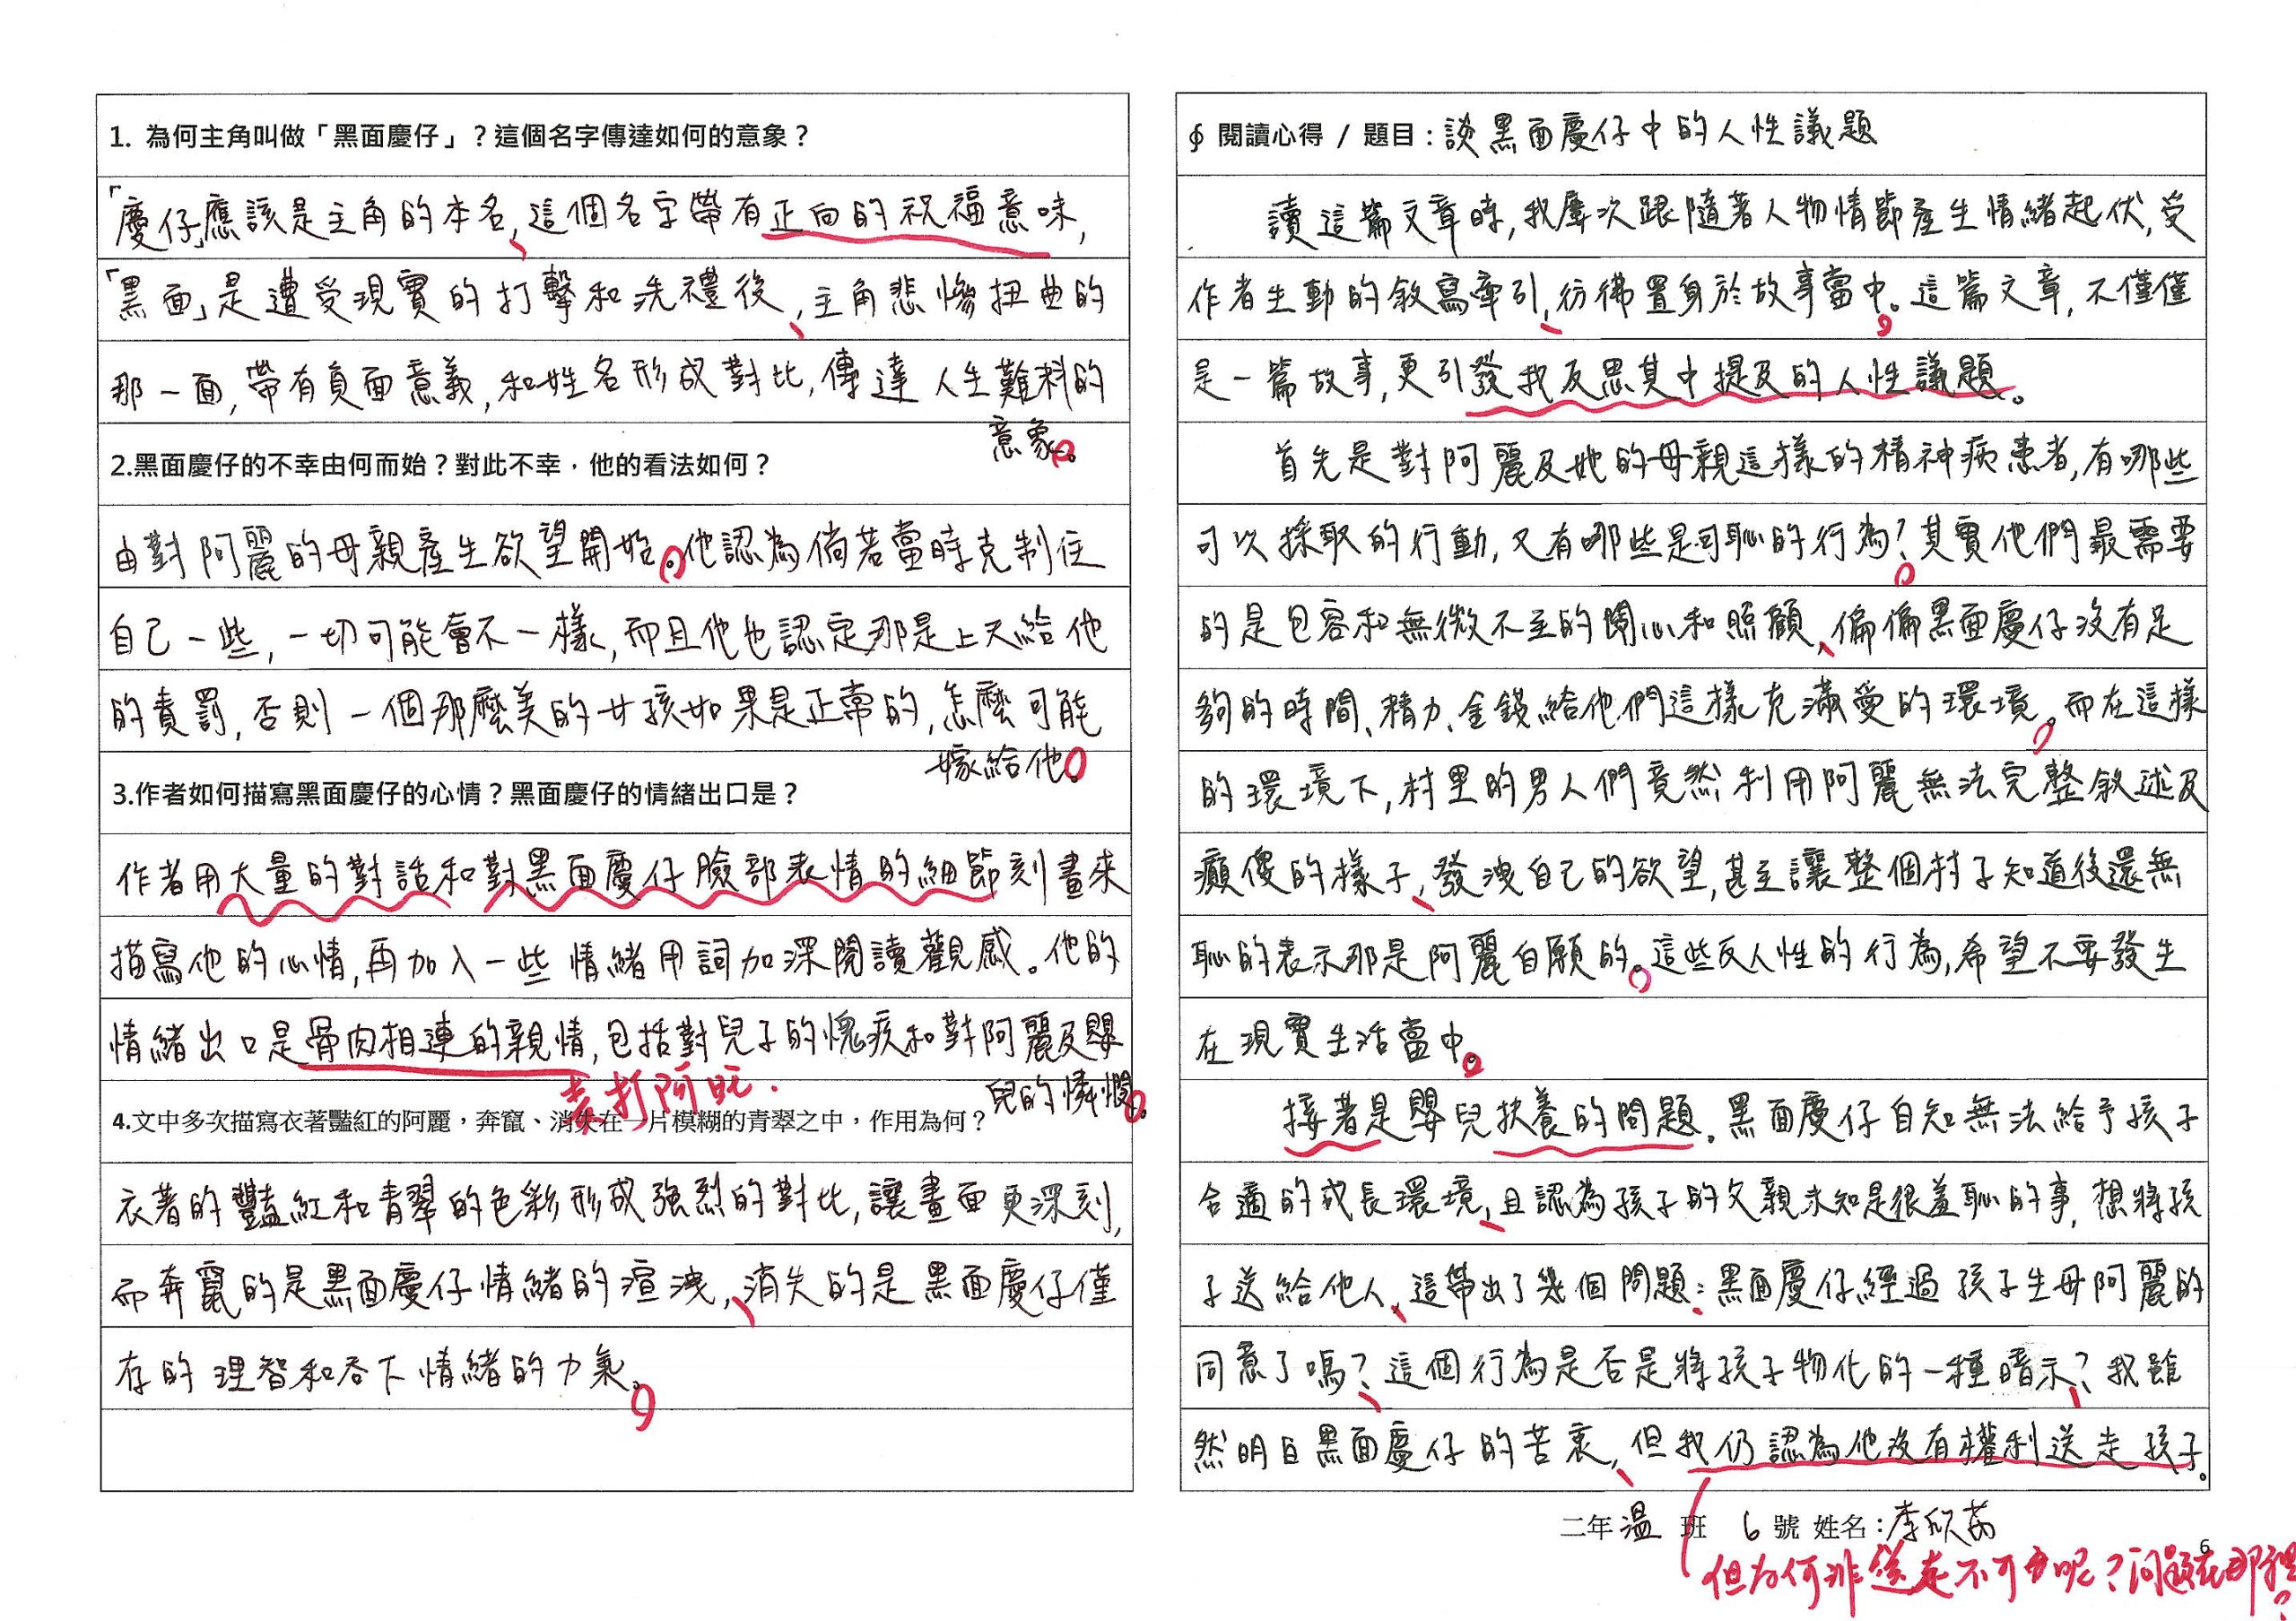 1. 為何主角叫做「黑面慶仔」？這個名字傳達如何的意象？
「慶仔」應該是主角的本名，這個名字帶有正向的祝福意味，
「黑面」是遭受現實的打擊和洗禮後，主角悲慘扭曲的
那一面，帶有負面意義，和姓名形成對比，傳達人生難料的
意象。
2.黑面慶仔的不幸由何而始？對此不幸，他的看法如何？
由對阿麗的母親產生欲望開始。他認為倘若當時克制住
自己一些，一切可能會不一樣，而且他也認定那是上天給他
的責罰，否則一個那麼美的女孩如果是正常的，怎麼可能
嫁給他。
3.作者如何描寫黑面慶仔的心情？黑面慶仔的情緒出口是？
作者用大量的對話和對黑面慶仔臉部表情的細節刻畫來
描寫他的心情，再加入一些情緒用詞加深閱讀觀感。他的
情緒出口是骨肉相連的親情，包括對兒子的愧疚和對阿麗及嬰
兒的憐憫。
打阿旺.
4.文中多次描寫衣著豔紅的阿麗，奔竄、消失在一片模糊的青翠之中，作用為何？
衣著的豔紅和青翠的色彩形成強烈的對比，讓畫面更深刻，
而奔竄的是黑面慶仔情緒的渲洩，消失的是黑面慶仔僅
存的理智和吞下情緒的力氣。
∮ 閱讀心得 / 題目：談黑面慶仔中的人性議題
讀這篇文章時，我屢次跟隨著人物情節產生情緒起伏，受
作者生動的敘寫牽引，彷彿置身於故事當中。這篇文章，不僅僅
是一篇故事，更引發我反思其中提及的人性議題。
首先是對阿麗及她的母親這樣的精神病患者，有哪些
可以採取的行動，又有哪些是可恥的行為？其實他們最需要
的是包容和無微不至的關心和照顧，偏偏黑面慶仔沒有足
夠的時間、精力、金錢給他們這樣充滿愛的環境。而在這樣
的環境下，村里的男人們竟然利用阿麗無法完整敘述及
癲傻的樣子，發洩自己的欲望，甚至讓整個村子知道後還無
恥的表示那是阿麗自願的。這些反人性的行為，希望不要發生
在現實生活當中。
接著是嬰兒扶養的問題。黑面慶仔自知無法給予孩子
合適的成長環境，且認為孩子的父親未知是很羞恥的事，想將孩
子送給他人，這帶出了幾個問題：黑面慶仔經過孩子生母阿麗的
同意了嗎？這個行為是否是將孩子物化的一種暗示？我雖
然明白黑面慶仔的苦衷，但我仍認為他沒有權利送走孩子。
二年溫班 6 號 姓名：李欣芮
6
但為何非送走不可呢？問題在那裡？